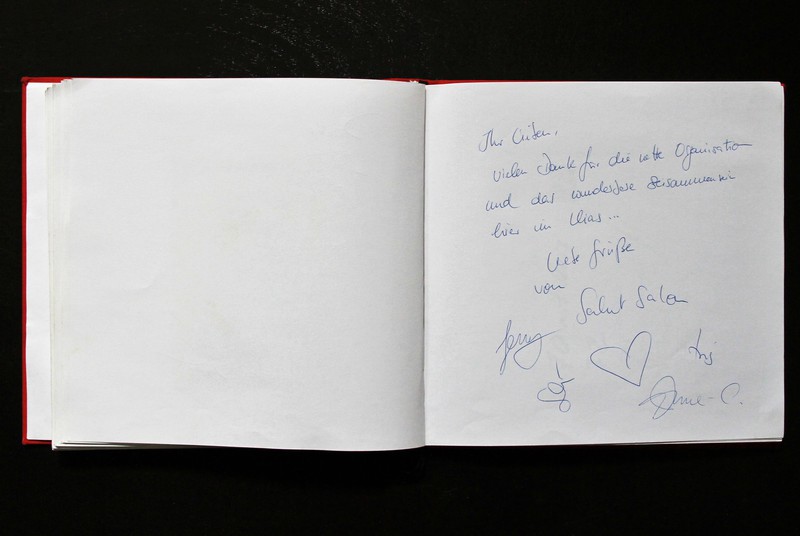 Ihr Lieben,
vielen Dank für die nette Organisation
und das wunderbare Zusammensein
hier im
Liebe Grüße
von
Salut Salon
Iris
Anne-C.